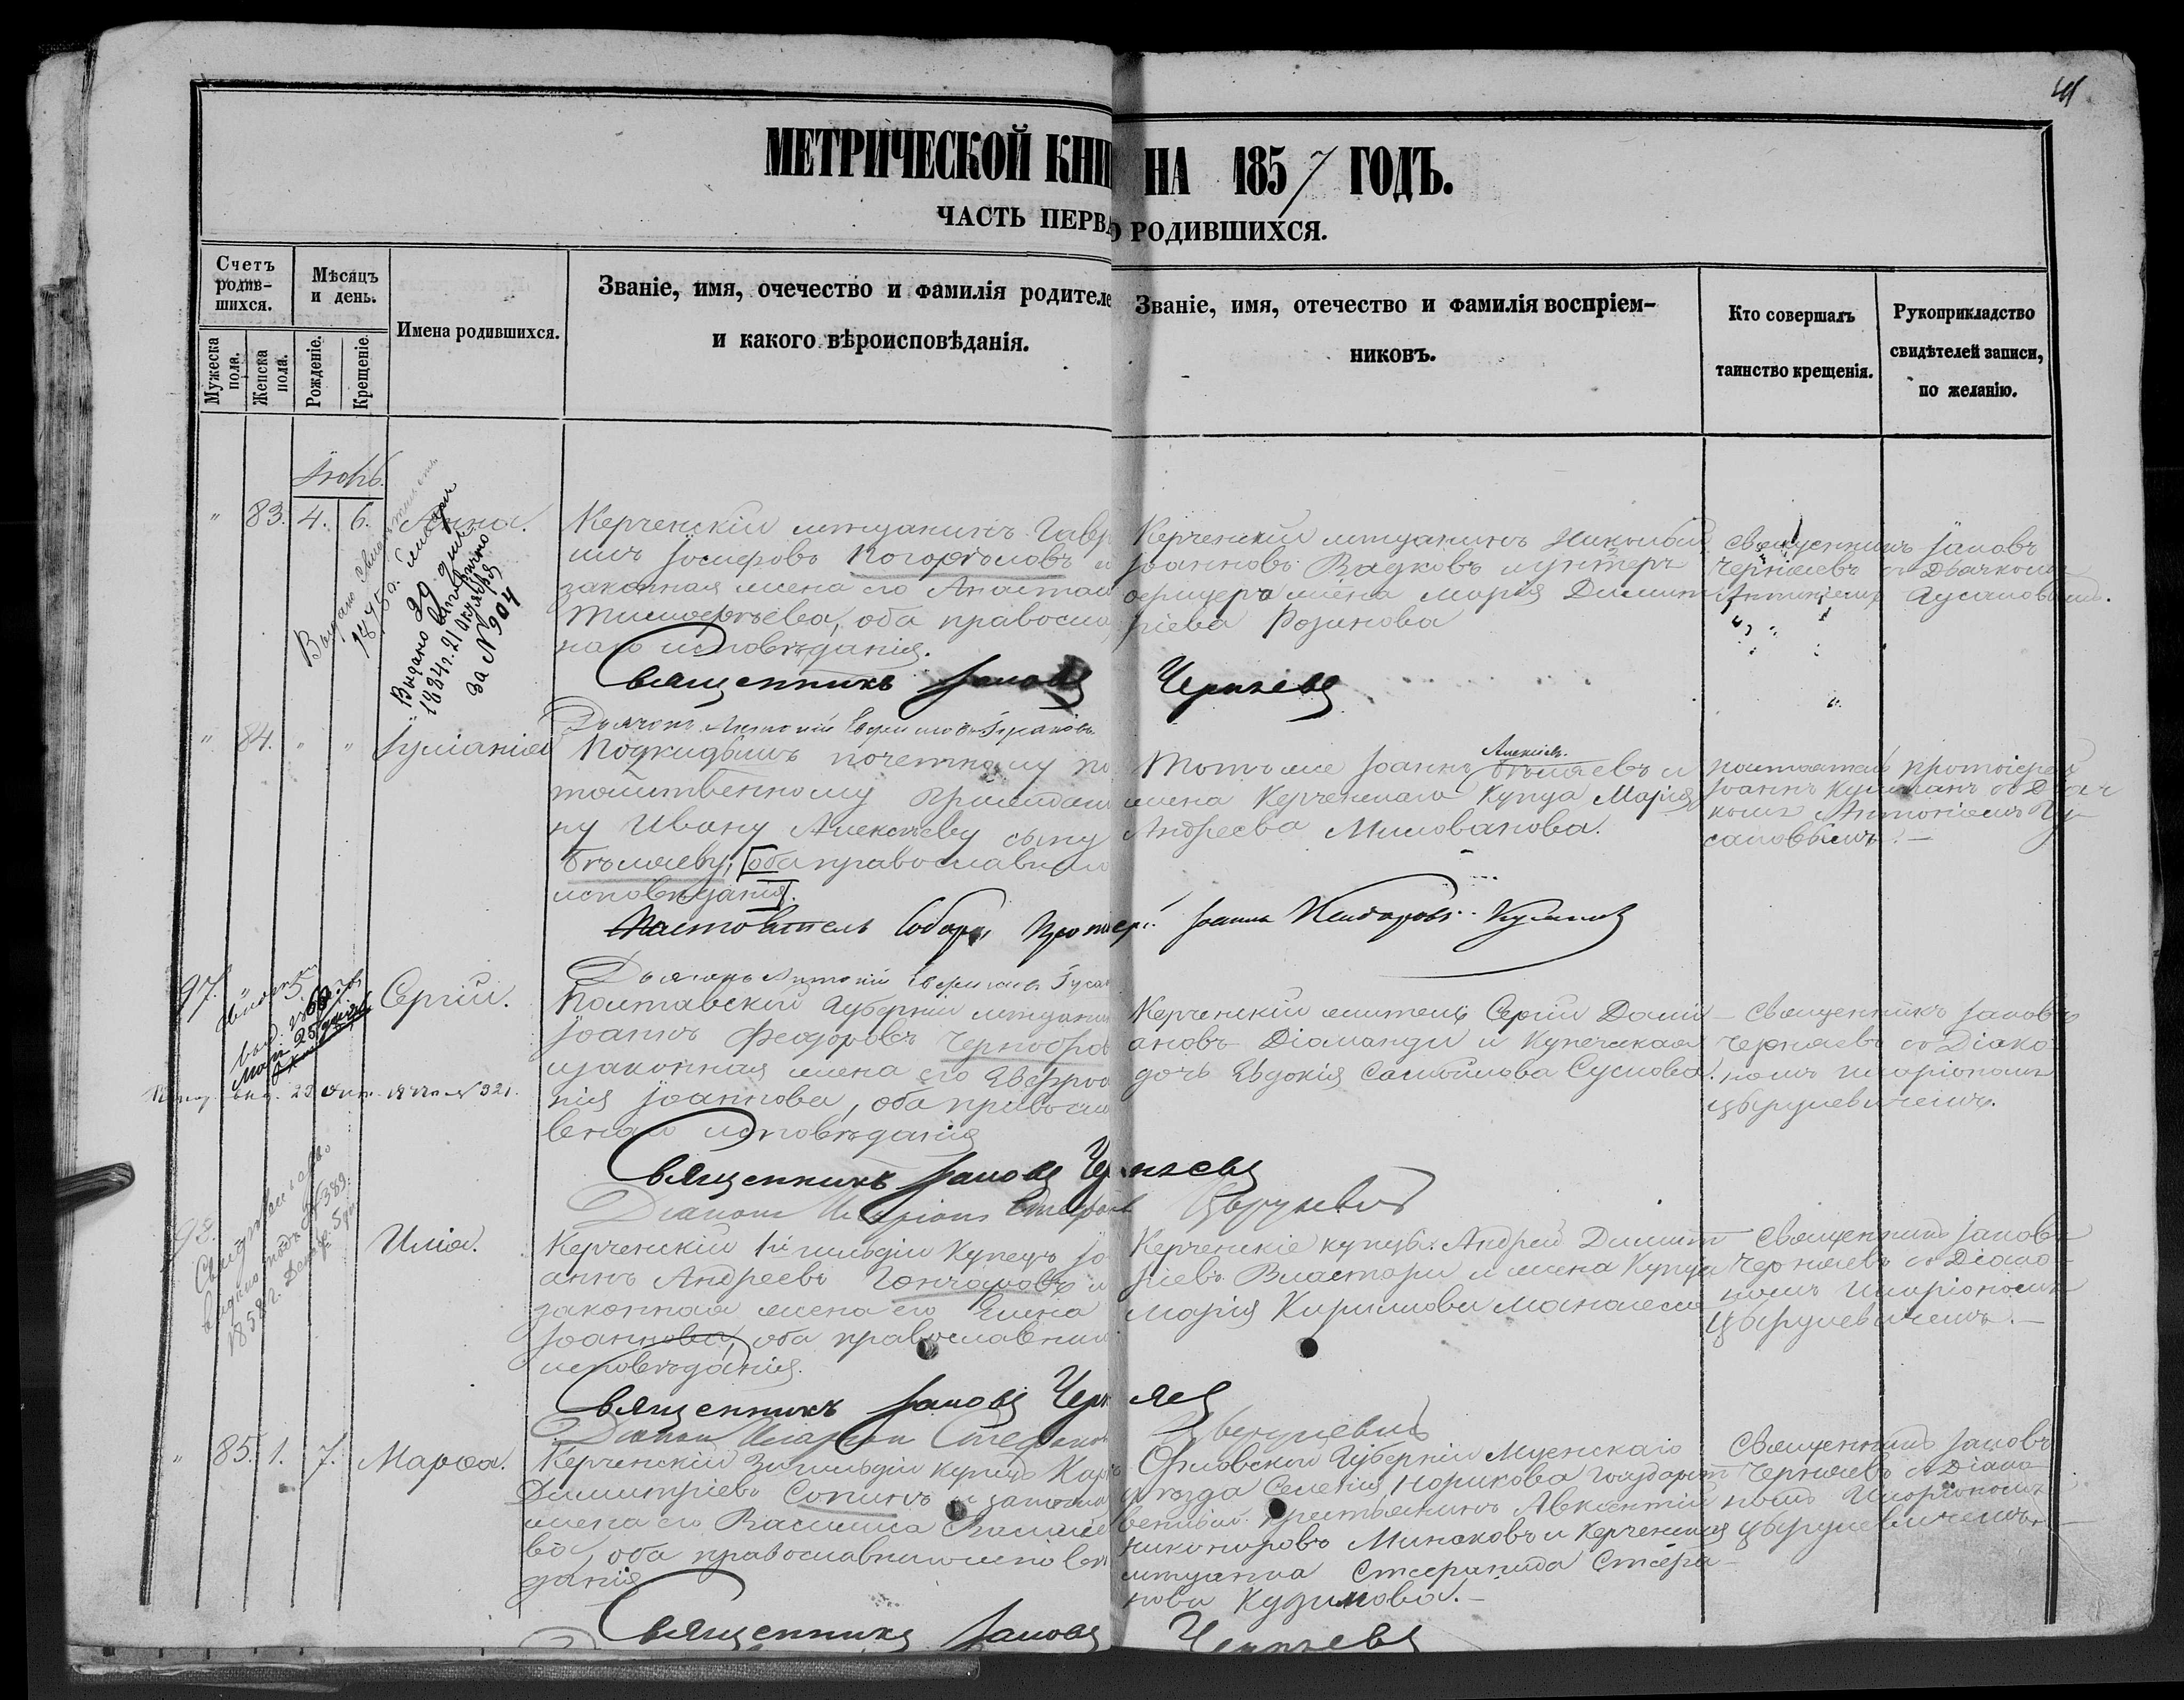 41
МЕТРИЧЕСКОЙ КНИ НА 1857 ГОДЪ.
ЧАСТЬ ПЕРВА О РОДИВШИХСЯ.
Счетъ родив-шихся.
Мужеска пола.
Женска пола.
Мѣсяцъ и день.
Рожденіе.
Крещеніе.
Имена родившихся.
Званіе, имя, очечество и фамилія родителе
и какого вѣроисповѣданія.
Званіе, имя, отечество и фамилія воспріем-
никовъ.
Кто совершалъ
таинство крещенія.
Рукоприкладство
свидѣтелей записи,
по желанію.
" 83. 4. 6. Анна.
Керченскій мѣщанинъ Гавр
илъ Іосифовъ Погорѣловъ и
законная жена его Анастас
Тимофѣева, оба православ
наго исповѣданія.
Священникъ Іаковъ Черняевъ
Керченскій мѣщанинъ Николай
Іоанновъ Вадковъ и унтеръ
офицера жена Марія Димит
ріева Розинова
Священникъ Іаковъ
Черняевъ съ Дьячкомъ
Антоніемъ Гусаковымъ.
Выдано
1884 г. 21 октября
за № 904
" 84. " " Іуліанія
Подкидышъ почетному по
томственному граждани
ну Ивану Алексѣеву сыну
Бѣляеву, оба православнаго
исповѣданія.
Настоятель Собора Протоіер.
Тотъ же Іоаннъ Алексѣев. Бѣляевъ и
жена Керченскаго Купца Марія
Андреева Милованова.
настоятель протоіерей
Іоаннъ Кумпанъ съ Дьяч
комъ Антоніемъ Гу
саковымъ. —
97. " 5. Сергій.
Полтавской губерніи мѣщанин
Іоаннъ Феодоровъ Чернобров
и законная жена его Евфрос
нія Іоаннова, оба правосла
внаго исповѣданія
Священникъ Іаковъ Черняевъ
Керченскій житель Сергій Доми
ановъ Діаманди и Купеческая
дочь Евдокія Самойлова Суслова.
Священникъ Іаковъ
Черняевъ съ Діако
номъ Иларіономъ
Цыруневичемъ.
98. Илія.
Свидѣтельство
выдано подъ № 389.
1858 г. Декабр. 5 дня
Керченскій 1й гильдіи Купецъ Іо
аннъ Андреевъ Гончаровъ и
законная жена его Елена
Іоаннова, оба православнаго
исповѣданія.
Священникъ Іаковъ Черняев
Керченскіе купцы: Андрей Димит
ріевъ Властари и жена Купца
Марія Кириллова
Священникъ Іаковъ
Черняевъ съ Діако
номъ Иларіономъ
Цыруневичемъ. —
" 85. 1. 7. Марѳа.
Керченскій 3й гильдіи купецъ Кар
Димитріевъ Сопинъ и законная
жена его Василиса Василье
ва, оба православнаго исповѣ
данія
Священникъ Іаковъ Черняевъ
Орловской Губерніи Мценскаго
уѣзда Селенія Норикова государст
венный крестьянинъ Авксентій
Никоноровъ Минаковъ и Керченская
мѣщанка Стефанида Стефа
нова Кудинова. —
Священникъ Іаковъ
Черняевъ съ Діако
номъ Иларіономъ
Цыруневичемъ.